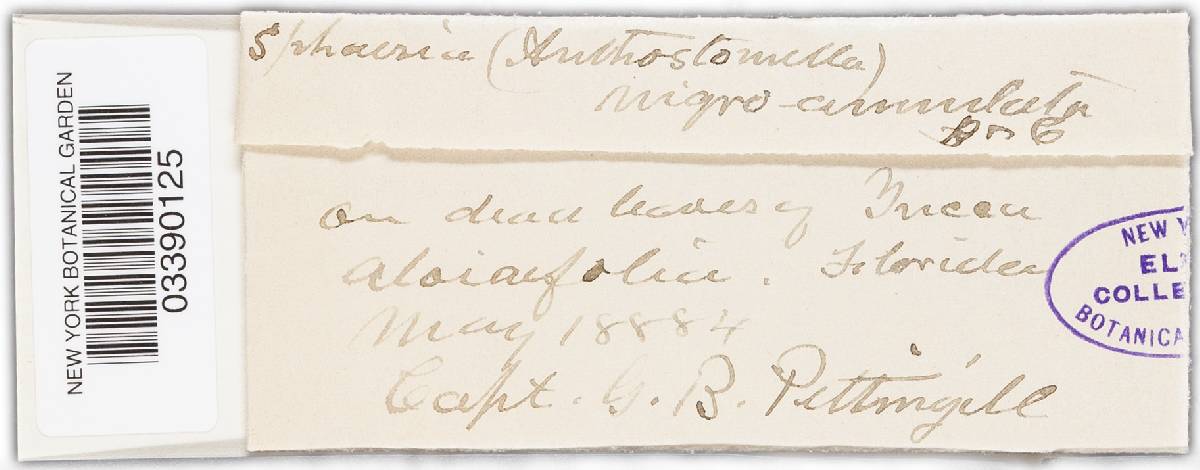 NEW YORK BOTANICAL GARDEN
03390125
Sphaeria (Anthostomella)
nigro-annulata
B & C
on dead leaves of Yucca
aloiaefolia. Florida
May 18884
Capt. G. B. Pettingill
NEW Y
EL
COLLE
BOTANICA